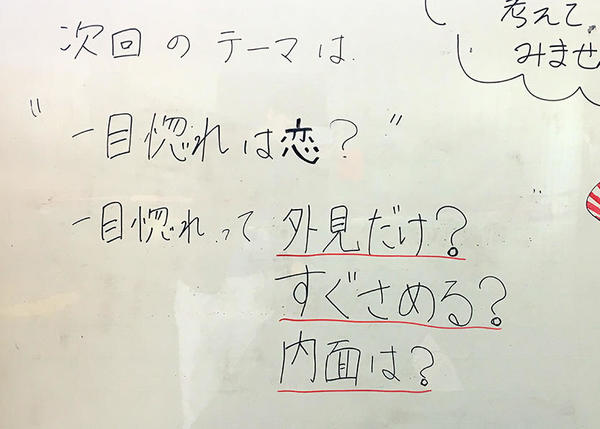 次回のテーマは
考えて
みませ
"一目惚れは恋?"
一目惚れって 外見だけ?
すぐさめる?
内面は?